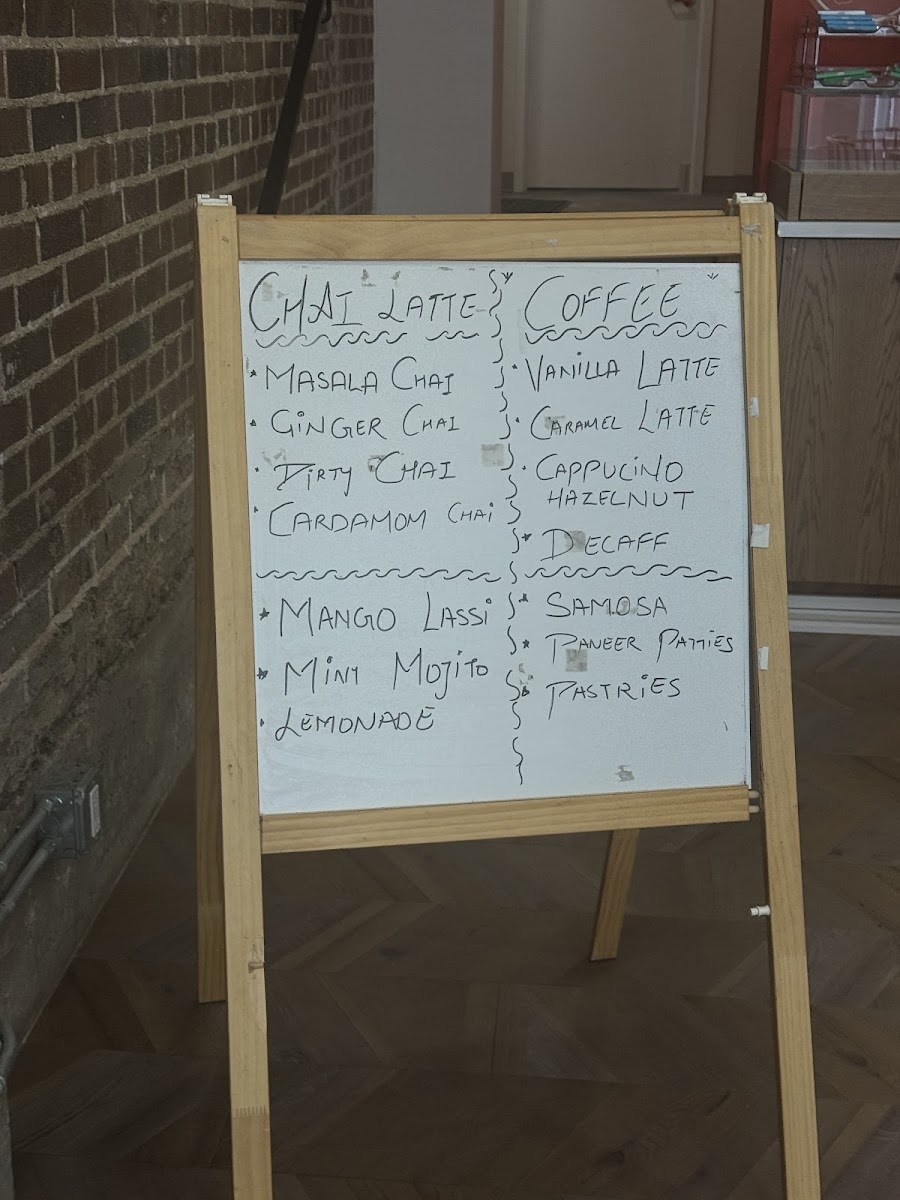 CHAI LATTE
MASALA CHAI
GINGER CHAI
DIRTY CHAI
CARDAMOM CHAI
MANGO LASSI
MINT MOJITO
LEMONADE
COFFEE
VANILLA LATTE
CARAMEL LATTE
CAPPUCINO
HAZELNUT
DECAFF
SAMOSA
PANEER PATTIES
PASTRIES